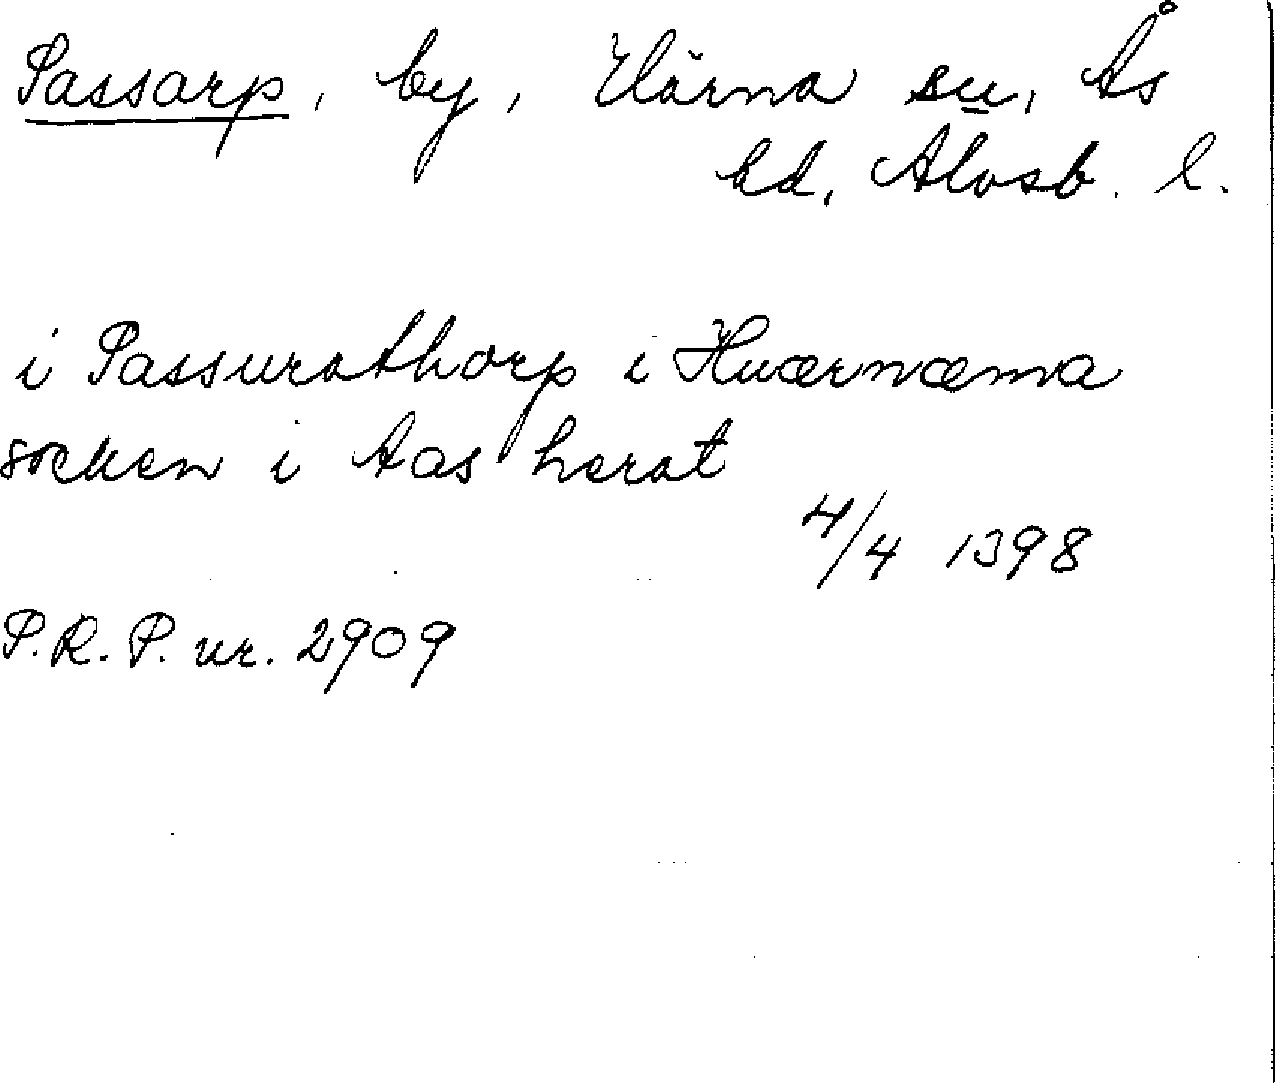 Passarp, by, Härna sn, Ås
hd, Älvsb. l.
i Passurathorp i Huærnæma
socken i Aas herat
4/4 1398
P.R.P. nr. 2909